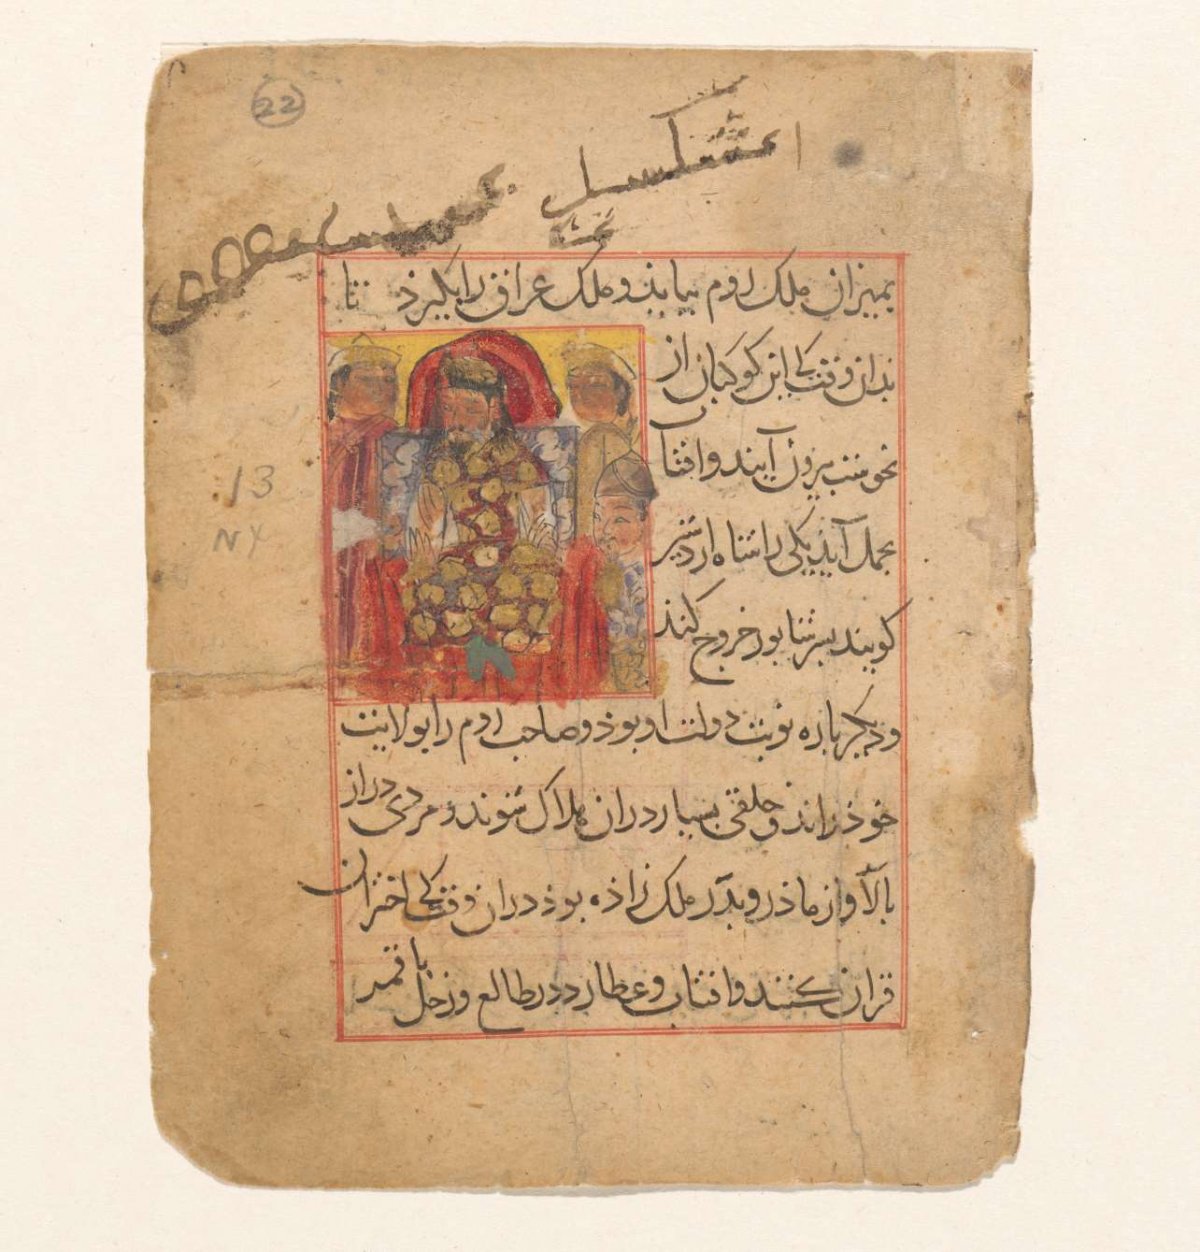 22
بمیزان ملک روم بیاید و ملک عراق را بگیرذ تا
بدان وقت کی این کوکبان از
نحوست بیرون آیند و افتاب
بحمل آید یکی را شاه اردشیر
کویند بسر شابور خروج کند
و دیگرباره نوبت دولت او بوذ و صاحب روم را بولایت
خوذ راند و خلقی بسیار دران هلاک شوند و مردی دراز
بالا و از ماذر و بدر ملک زاذه بوذ دران وقت کی اختران
قران کنند و افتاب و عطارد در طالع و زحل با قمر
13
NY